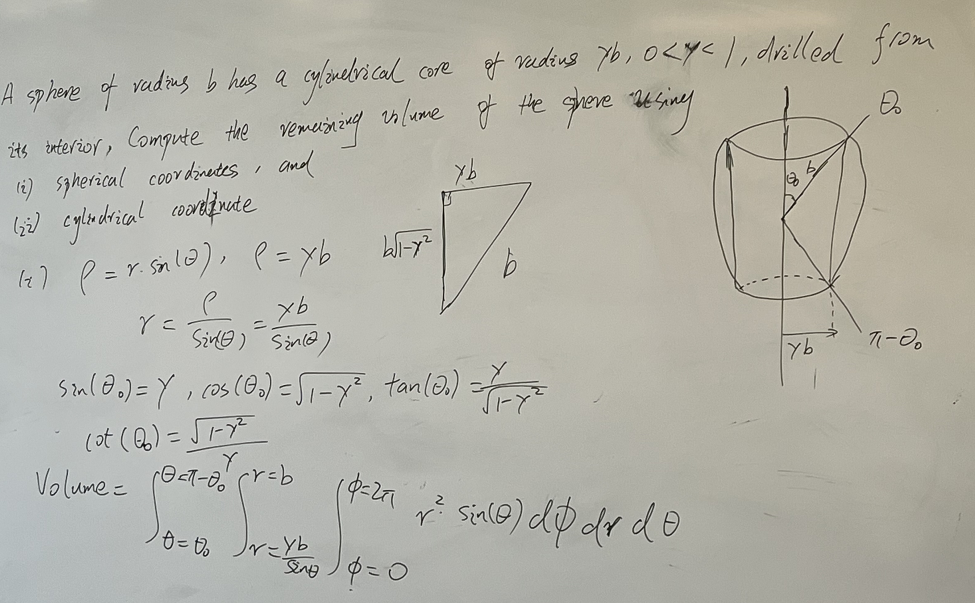 A sphere of radius b has a cylindrical core of radius γb, 0<γ<1, drilled from
its interior, Compute the remaining volume of the sphere using
(i) spherical coordinates, and
(ii) cylindrical coordinate
(i) ρ = r·sin(θ), ρ = γb
r = ρ/sin(θ) = γb/sin(θ)
sin(θ₀) = γ, cos(θ₀) = √(1-γ²), tan(θ₀) = γ/√(1-γ²)
cot(θ₀) = √(1-γ²)/γ
Volume = ∫_{θ=θ₀}^{θ=π-θ₀} ∫_{r=γb/sinθ}^{r=b} ∫_{ϕ=0}^{ϕ=2π} r² sin(θ) dϕ dr dθ
γb
b√(1-γ²)
b
θ₀
b
θ₀
γb
π-θ₀